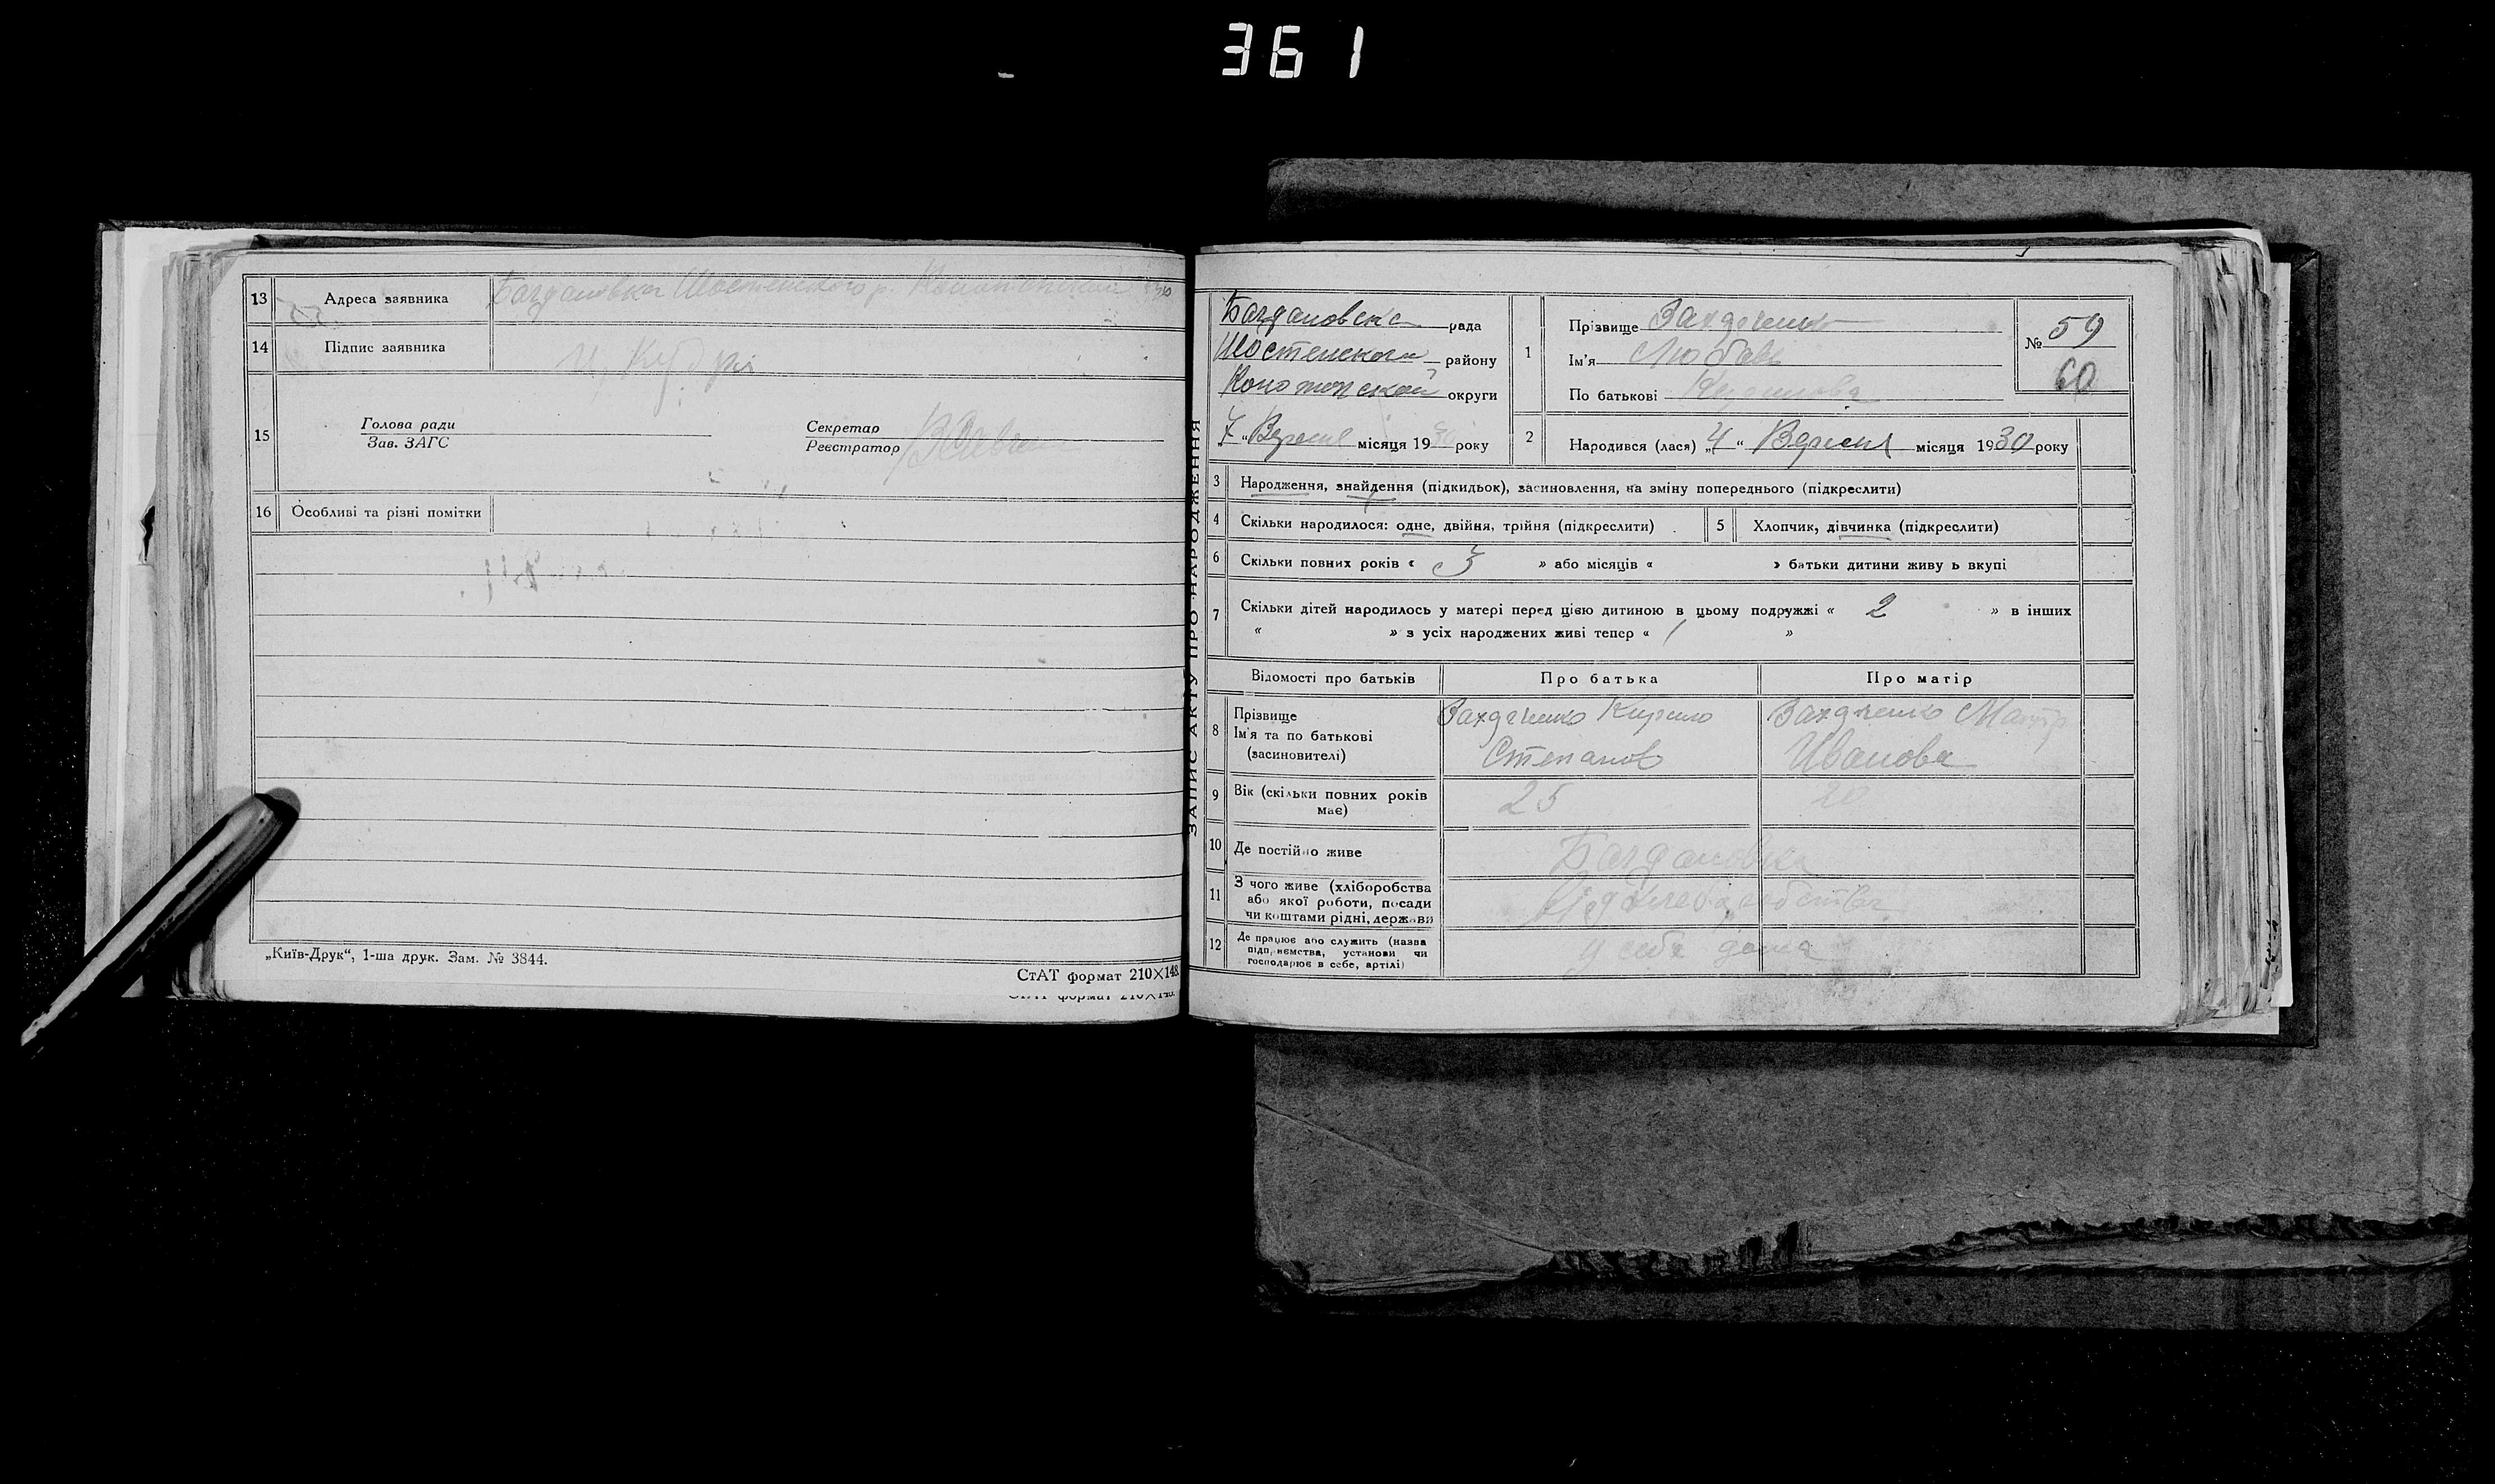 361
13 Адреса заявника Богдановка Шостенского р.
14 Підпис заявника
15 Голова ради
Зав. ЗАГС
Секретар
Реєстратор
16 Особливі та різні помітки
„Київ-Друк“, 1-ша друк. Зам. № 3844.
СтАТ формат 210×148.
ЗАПИС АКТУ ПРО НАРОДЖЕННЯ
Богдановска рада
Шостенского району
Конотопской округи
7 „ Вересня місяця 1930 року
1 Прізвище
Ім'я Любовь
По батькові Кирилова
№ 59
60
2 Народився (лася) „4 “ Вересня місяця 1930 року
3 Народження, знайдення (підкидьок), засиновлення, на зміну попереднього (підкреслити)
4 Скільки народилося: одне, двійня, трійня (підкреслити)
5 Хлопчик, дівчинка (підкреслити)
6 Скільки повних років « 3 » або місяців « » батьки дитини живуть вкупі
7 Скільки дітей народилось у матері перед цією дитиною в цьому подружжі « 2 » в інших
« » з усіх народжених живі тепер « 1 »
Відомості про батьків Про батька Про матір
8 Прізвище
Ім'я та по батькові
(засиновителі)
Кирило
Степанов
Иванова
9 Вік (скільки повних років
має)
25 20
10 Де постійно живе Богдановка
11 З чого живе (хліборобства
або якої роботи, посади
чи коштами рідні, держави
12 Де працює або служить (назва
підприємства, установи чи
господарює в себе, артілі)
у себе дома